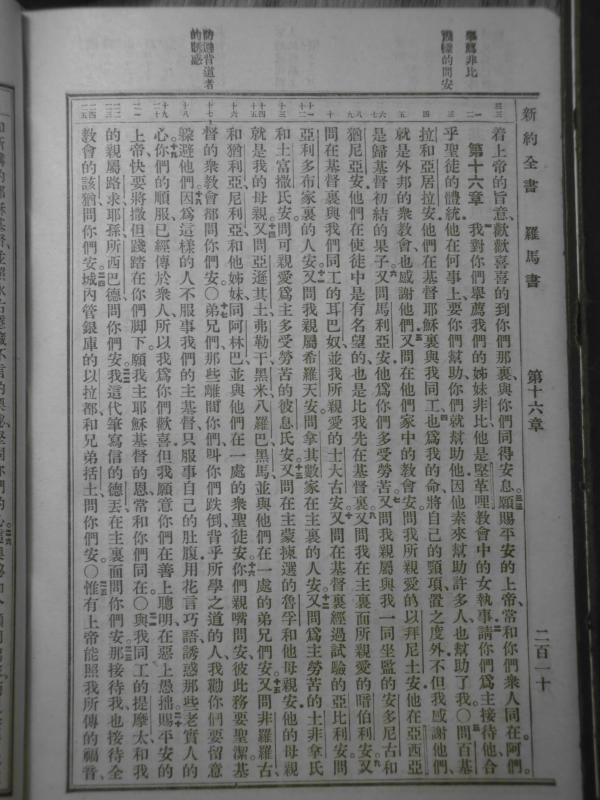 新約全書 羅馬書 第十六章 二百一十
舉薦非比
着上帝的旨意、歡歡喜喜的到你們那裏、與你們同得安息。願賜平安的上帝、常和你們衆人同在。阿們。
第十六章 我對你們舉薦我們的姊妹非比、他是堅革哩教會中的女執事、請你們爲主接待他、合
乎聖徒的體統、他在何事上要你們幫助、你們就幫助他、因他素來幫助許多人、也幫助了我。〇問百基
拉和亞居拉安、他們在基督耶穌裏與我同工、也爲我的命將自己的頸項置之度外、不但我感謝他們、
就是外邦的衆教會也感謝他們。又問在他們家中的教會安。問我所親愛的以拜尼土安、他在亞西亞
是歸基督初結的果子。又問馬利亞安、他爲你們多受勞苦。又問我親屬與我一同坐監的安多尼古和
猶尼亞安、他們在使徒中是有名望的、也是比我先在基督裏。又問我在主裏面所親愛的暗伯利安。又
問在基督裏與我們同工的耳巴奴、並我所親愛的士大古安。又問在基督裏經過試驗的亞比利安。問
亞利多布家裏的人安。又問我親屬希羅天安。問拿其數家在主裏的人安。又問爲主勞苦的土非拿氏
和土富撒氏安。問可親愛爲主多受勞苦的彼息氏安。又問在主蒙揀選的魯孚和他母親安、他的母親
就是我的母親。又問亞遜其土、弗勒干、黑米、八羅巴、黑馬、並與他們在一處的弟兄們安。又問非羅羅古
和猶利亞、尼利亞和他姊妹、同阿林巴並與他們在一處的衆聖徒安。你們親嘴問安、彼此務要聖潔、基
防避背道者
的誘惑
督的衆教會都問你們安。〇弟兄們、那些離間你們、叫你們跌倒、背乎所學之道的人、我勸你們要留意
躱避他們。因爲這樣的人不服事我們的主基督、只服事自己的肚腹、用花言巧語、誘惑那些老實人的
心。你們的順服已經傳於衆人、所以我爲你們歡喜、但我願意你們在善上聰明、在惡上愚拙。賜平安的
上帝快要將撒但踐踏在你們脚下。願我主耶穌基督的恩、常和你們同在。〇與我同工的提摩太、和我
的親屬路求、耶孫、所西巴德、問你們安。我這代筆寫信的德丟、在主裏面問你們安。那接待我、也接待全
教會的該猶、問你們安。城內管銀庫的以拉都、和兄弟括土、問你們安。〇惟有上帝能照我所傳的福音、